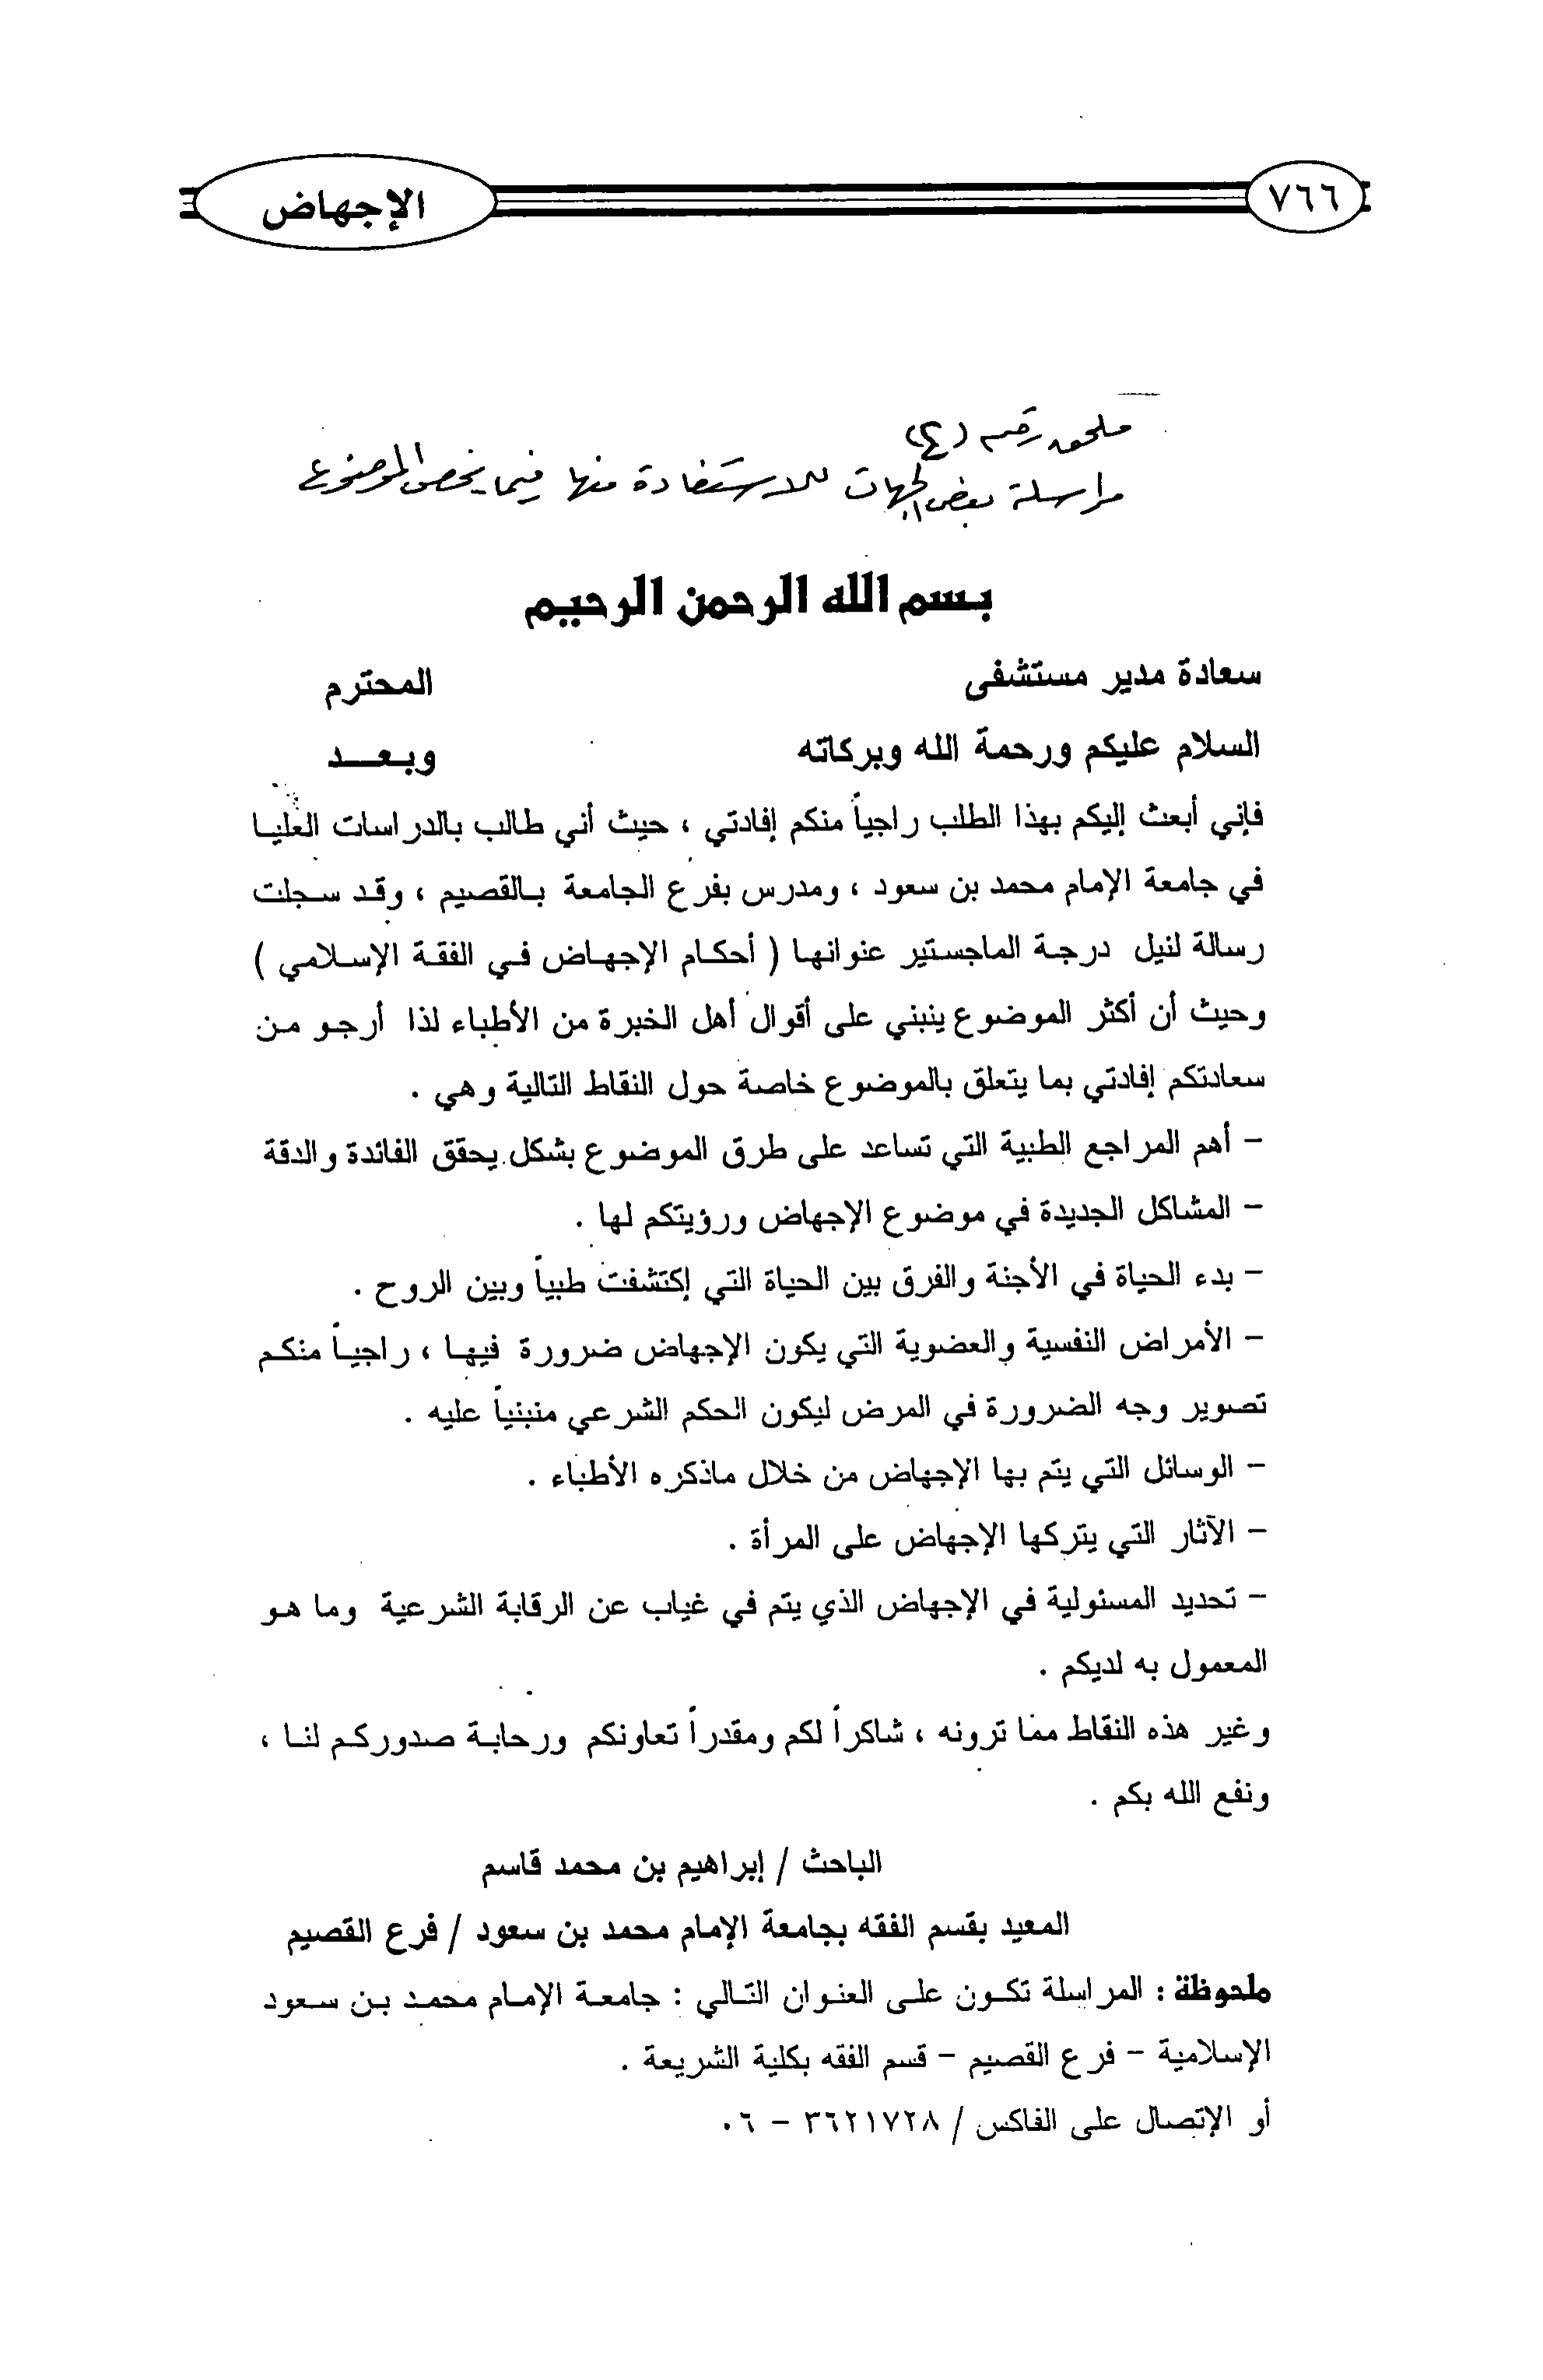 ٧٦٦
الإجهاض
ملحق رقم (٤)
مراسلة بعض الجهات للاستفادة منها فيما يخص الموضوع
بسم الله الرحمن الرحيم
سعادة مدير مستشفى المحترم
السلام عليكم ورحمة الله وبركاته وبعــد
فإني أبعث إليكم بهذا الطلب راجياً منكم إفادتي ، حيث أني طالب بالدراسات العليا
في جامعة الإمام محمد بن سعود ، ومدرس بفرع الجامعة بالقصيم ، وقد سجلت
رسالة لنيل درجة الماجستير عنوانها ( أحكام الإجهاض في الفقة الإسلامي )
وحيث أن أكثر الموضوع ينبني على أقوال أهل الخبرة من الأطباء لذا أرجو من
سعادتكم إفادتي بما يتعلق بالموضوع خاصة حول النقاط التالية وهي .
- أهم المراجع الطبية التي تساعد على طرق الموضوع بشكل يحقق الفائدة والدقة
- المشاكل الجديدة في موضوع الإجهاض ورؤيتكم لها .
- بدء الحياة في الأجنة والفرق بين الحياة التي إكتشفت طبياً وبين الروح .
- الأمراض النفسية والعضوية التي يكون الإجهاض ضرورة فيها ، راجياً منكم
تصوير وجه الضرورة في المرض ليكون الحكم الشرعي منبنياً عليه .
- الوسائل التي يتم بها الإجهاض من خلال ماذكره الأطباء .
- الآثار التي يتركها الإجهاض على المرأة .
- تحديد المسئولية في الإجهاض الذي يتم في غياب عن الرقابة الشرعية وما هو
المعمول به لديكم .
وغير هذه النقاط مما ترونه ، شاكراً لكم ومقدراً تعاونكم ورحابة صدوركم لنا ،
ونفع الله بكم .
الباحث / إبراهيم بن محمد قاسم
المعيد بقسم الفقه بجامعة الإمام محمد بن سعود / فرع القصيم
ملحوظة : المراسلة تكون على العنوان التالي : جامعة الإمام محمد بن سعود
الإسلامية - فرع القصيم - قسم الفقه بكلية الشريعة .
أو الإتصال على الفاكس / ٣٦٢١٧٢٨ - ٠٦